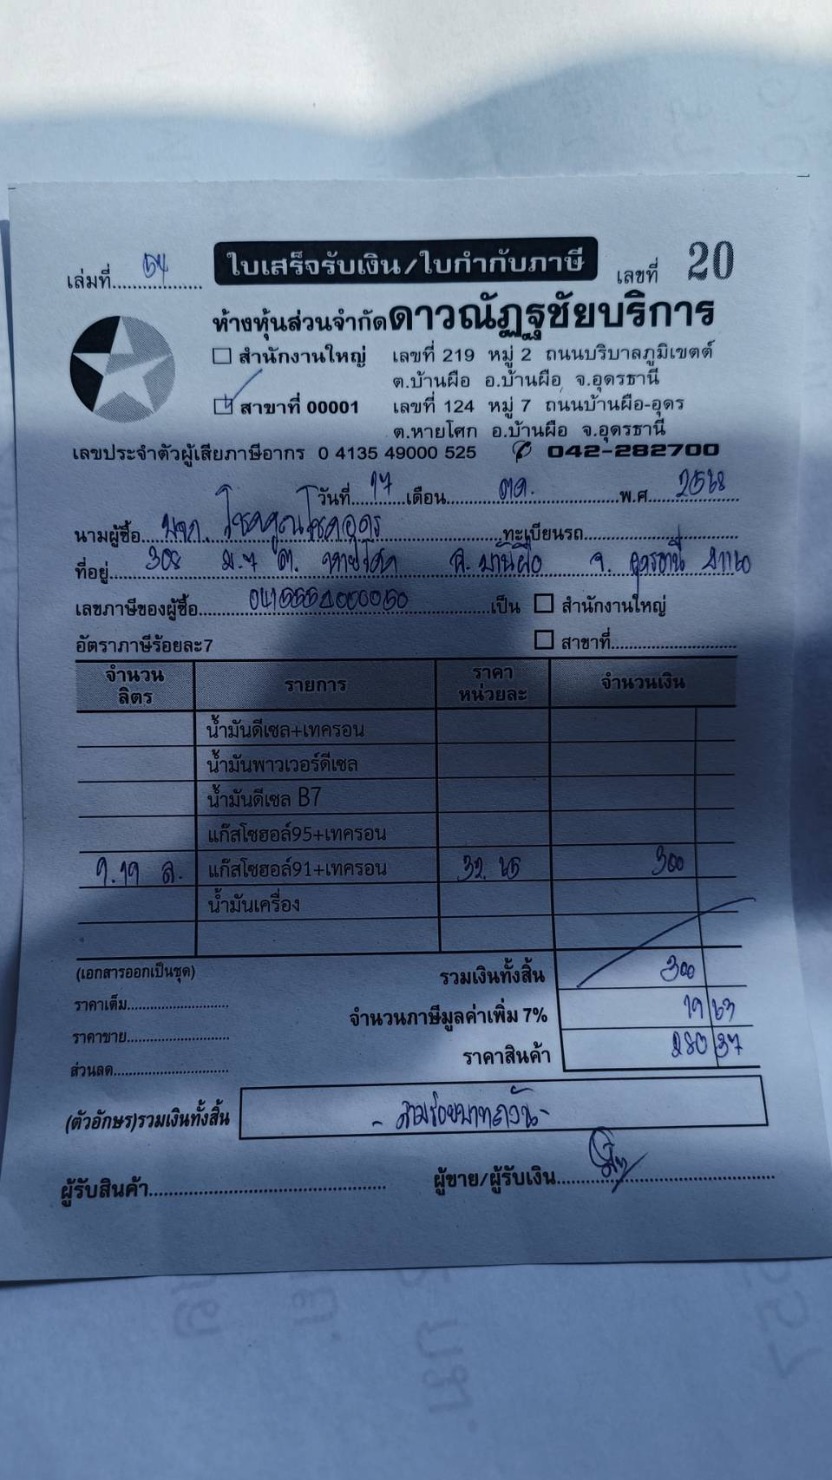 เล่มที่ 54 ใบเสร็จรับเงิน/ใบกำกับภาษี เลขที่ 20
ห้างหุ้นส่วนจำกัดดาวณัฏฐชัยบริการ
สำนักงานใหญ่ เลขที่ 219 หมู่ 2 ถนนบริบาลภูมิเขตต์
ต.บ้านผือ อ.บ้านผือ จ.อุดรธานี
สาขาที่ 00001 เลขที่ 124 หมู่ 7 ถนนบ้านผือ-อุดร
ต.หายโศก อ.บ้านผือ จ.อุดรธานี
เลขประจำตัวผู้เสียภาษีอากร 0 4135 49000 525 042-282700
วันที่ 17 เดือน ตค. พ.ศ. 2568
นามผู้ชื้อ หจก. โชคคูณโชคอุดร ทะเบียนรถ
ที่อยู่ 308 ม.7 ต. หายโศก อ. บ้านผือ จ. อุดรธานี 41160
เลขภาษีของผู้ซื้อ เป็น สำนักงานใหญ่
อัตราภาษีร้อยละ7 สาขาที่
จำนวน ลิตร รายการ ราคา หน่วยละ จำนวนเงิน
น้ำมันดีเซล+เทครอน
น้ำมันพาวเวอร์ดีเซล
น้ำมันดีเซล B7
แก๊สโซฮอล์95+เทครอน
ล. แก๊สโซฮอล์91+เทครอน 300
น้ำมันเครื่อง
(เอกสารออกเป็นชุด) รวมเงินทั้งสิ้น 300
ราคาเต็ม จำนวนภาษีมูลค่าเพิ่ม 7% 19 63
ราคาขาย ราคาสินค้า 280 37
ส่วนลด
(ตัวอักษร)รวมเงินทั้งสิ้น - สามร้อยบาทถ้วน -
ผู้รับสินค้า ผู้ขาย/ผู้รับเงิน